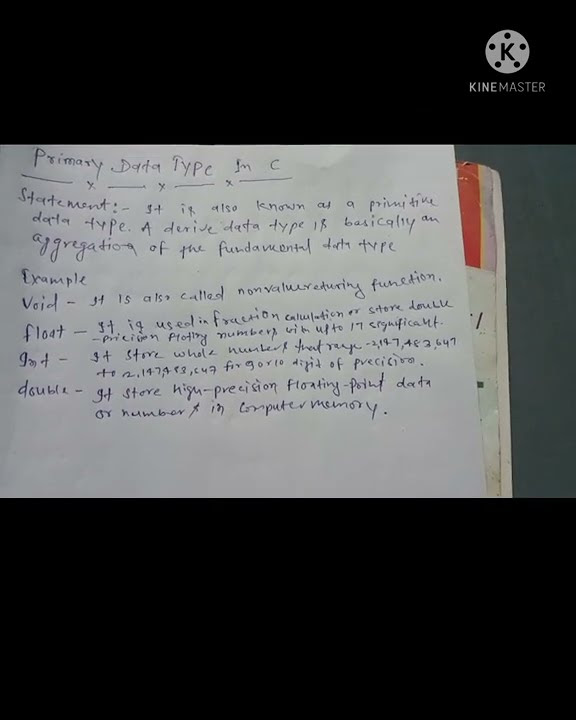 K
KINEMASTER
Primary Data Type In C
Statement:- It is also known as a primitive
data type. A derive data type is basically an
aggregation of the fundamental data type
Example
Void - It is also called nonvaluereturing function.
float - It is used in fraction calculation or store double
-pricision floting numbers with up to 17 significant.
Int - It store whole numbers that range -2,147,483,647
to 2,147,483,647 for 9 or 10 digit of precision.
double - It store high-precision floating-point data
or numbers in computer memory.